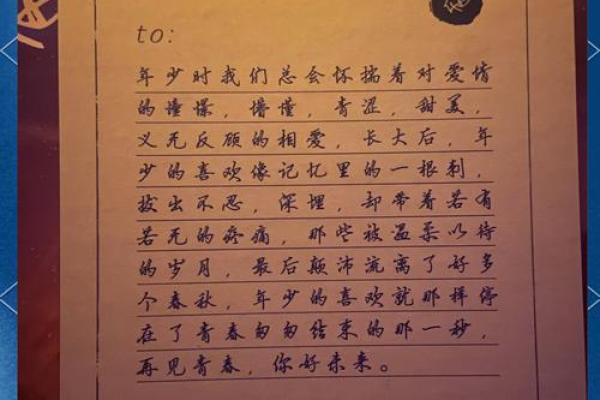 to:
年少时我们总会怀揣着对爱情
的憧憬，懵懂，青涩，甜美，
义无反顾的相爱，长大后，年
少的喜欢像记忆里的一根刺，
拔出不忍，深埋，却带着若有
若无的疼痛，那些被温柔以待
的岁月，最后颠沛流离了好多
个春秋，年少的喜欢就那样停
在了青春匆匆结束的那一秒，
再见青春，你好未来。